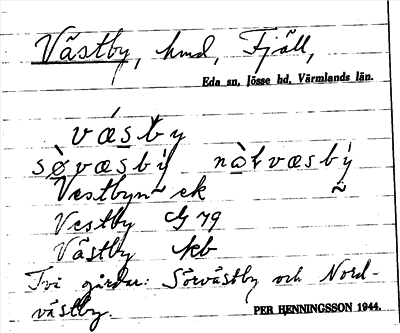 Västby, hmd, Fjäll,
Eda sn, Jösse hd, Värmlands län.
vǽsby
sø̀væsbý nòʈvæsbý
Vestbyn ek
Vestby G 79
Västby kb
Två gårdar: Sörvästby och Nord-
västby.
PER HENNINGSSON 1944.